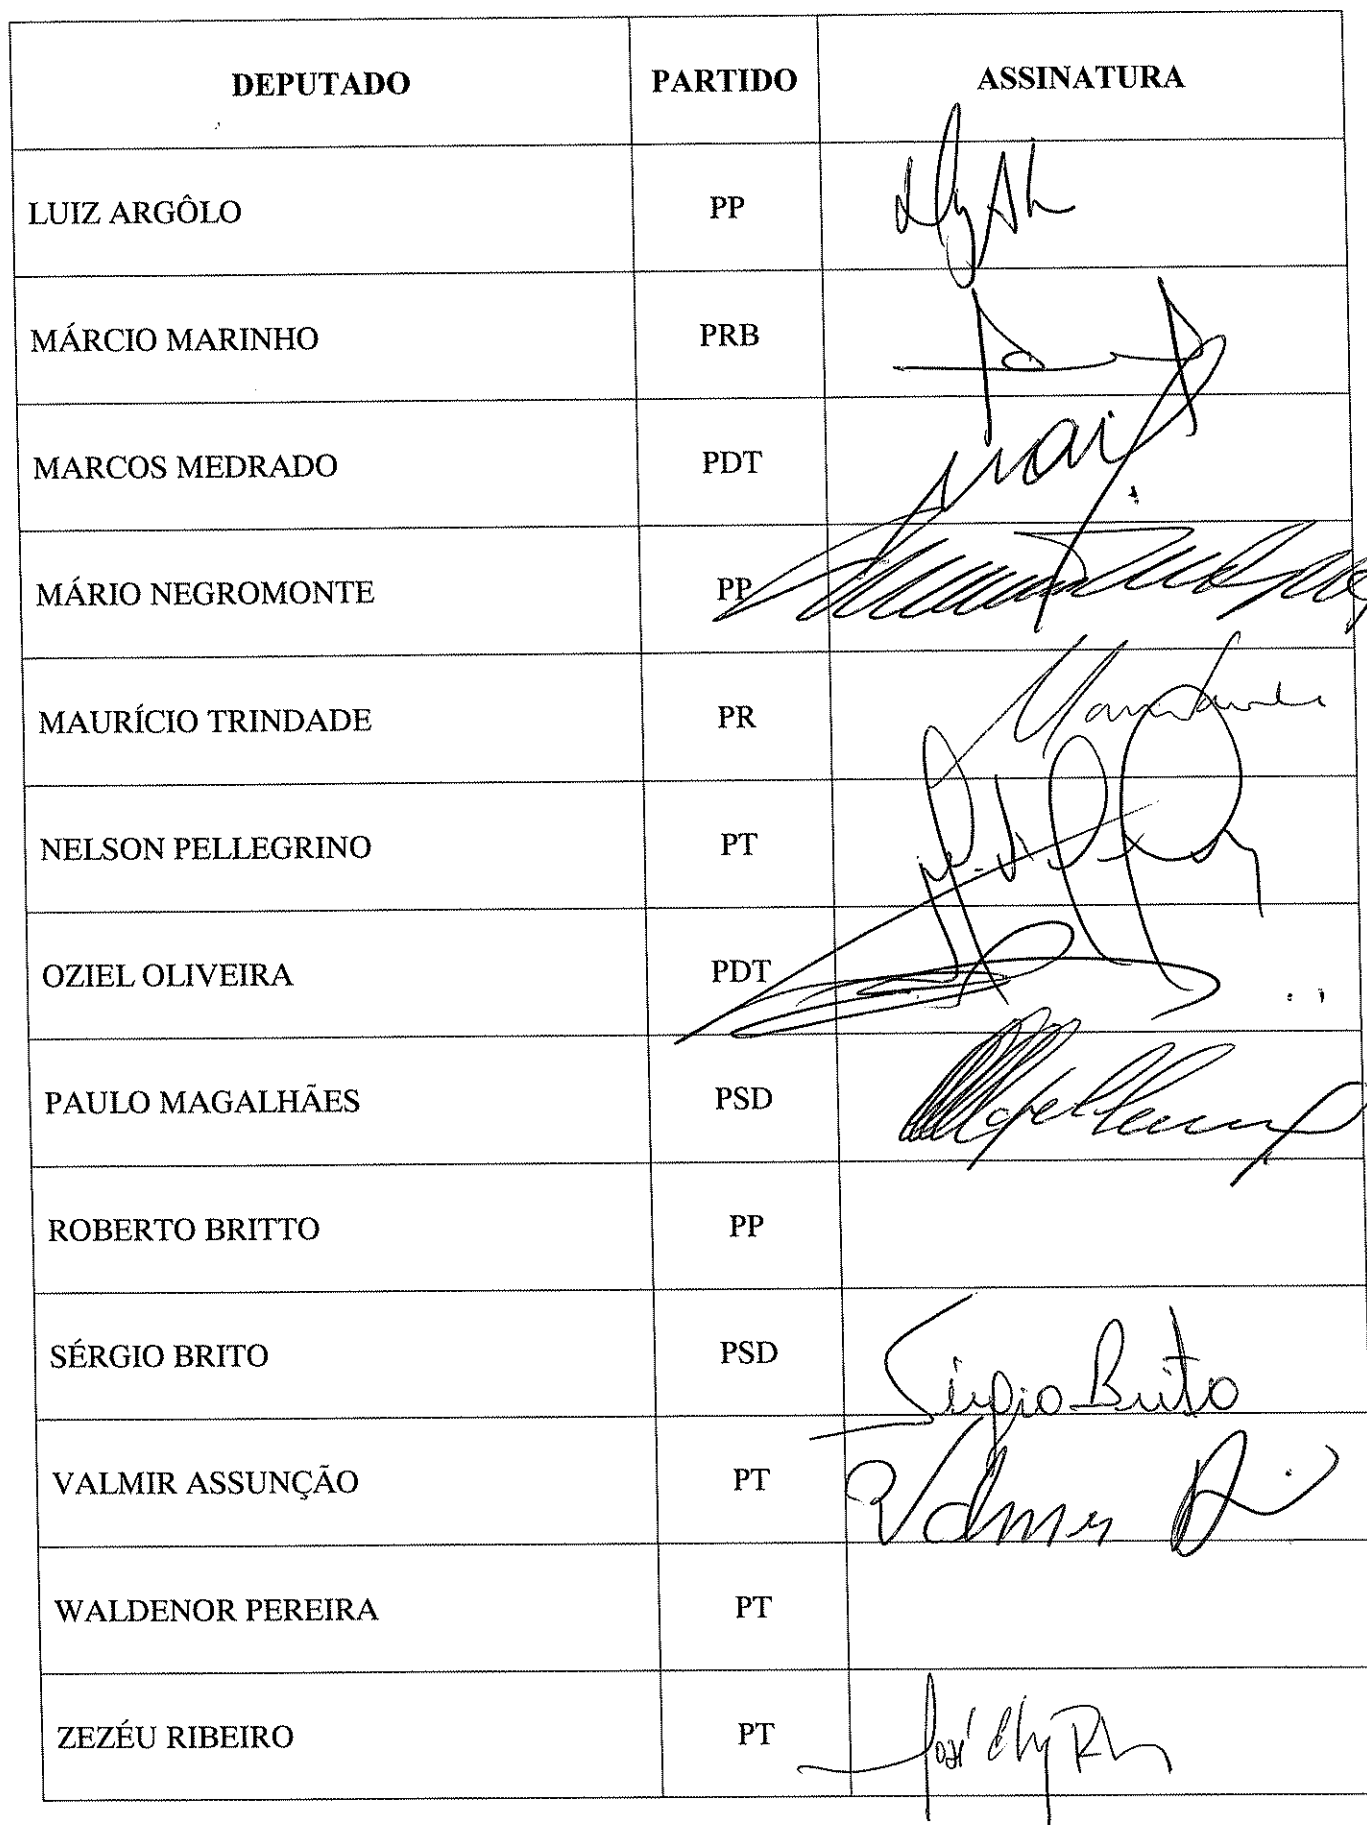 DEPUTADO PARTIDO ASSINATURA
LUIZ ARGÔLO PP
MÁRCIO MARINHO PRB
MARCOS MEDRADO PDT
MÁRIO NEGROMONTE PP
MAURÍCIO TRINDADE PR
NELSON PELLEGRINO PT
OZIEL OLIVEIRA PDT
PAULO MAGALHÃES PSD
ROBERTO BRITTO PP
SÉRGIO BRITO PSD Sérgio Brito
VALMIR ASSUNÇÃO PT Valmir
WALDENOR PEREIRA PT
ZEZÉU RIBEIRO PT José